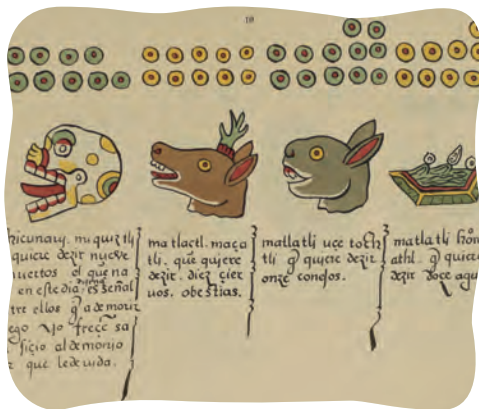 10
hicunavy. miquiztli
quiere dezir nueve
muertos el que na
en este dia es señal
tre ellos q̃ a de morir
freçe sa
fiçio al demonio
que le de vida.
matlactl. maça
tli. que quiere
dezir. diez çier
uos. o bestias.
matlatli uçe toch
tli q̃ quiere dezir
onze conejos.
matlatli
athl. q̃ quier
dezir doçe agu